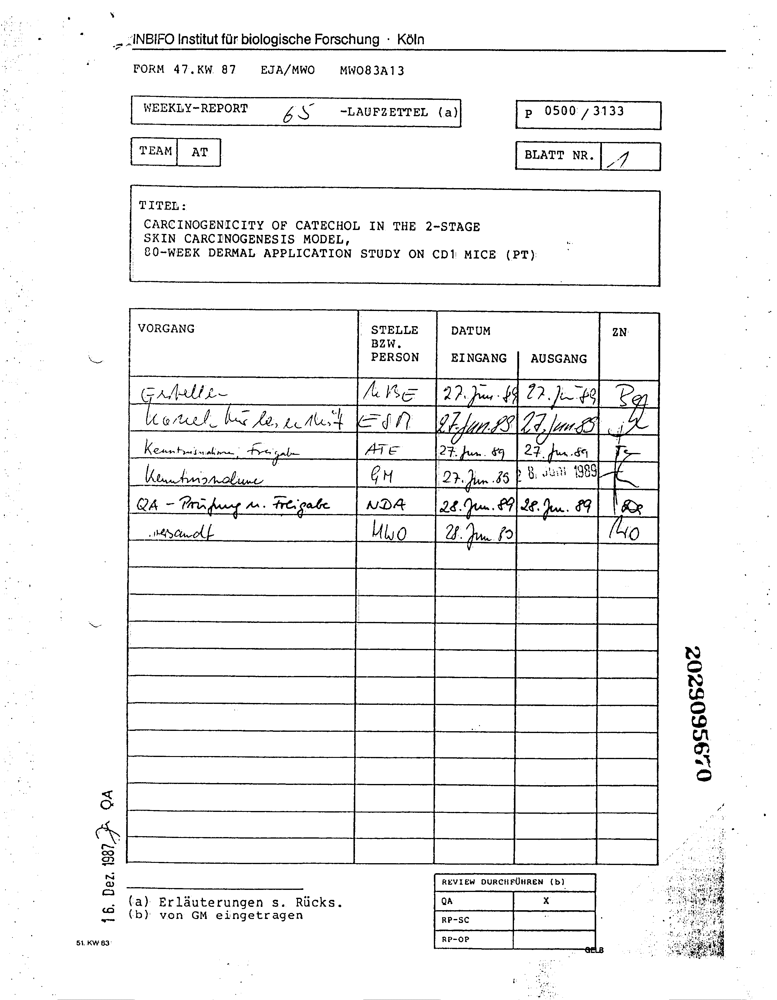 INBIFO Institut für biologische Forschung · Köln
FORM 47.KW 87 EJA/MWO MWO83A13
WEEKLY-REPORT 65 -LAUFZETTEL (a)
P 0500 / 3133
TEAM AT
BLATT NR. 1
TITEL:
CARCINOGENICITY OF CATECHOL IN THE 2-STAGE
SKIN CARCINOGENESIS MODEL,
80-WEEK DERMAL APPLICATION STUDY ON CD1 MICE (PT)
VORGANG STELLE DATUM ZN
BZW.
PERSON EINGANG AUSGANG
Erstellen 27. Jun. 89 27. Jun 89
27. Jun 89 27. Jun 89
Kenntnisnahme, Freigabe ATE 27. Jun. 89 27. Jun. 89
Kenntnisnahme GM 27. Jun. 89 28. Juni 1989
QA - Prüfung u. Freigabe NDA 28. Jun. 89 28. Jun. 89
versandt MWO 28. Jun 89
2029095670
16. Dez. 1987 QA
(a) Erläuterungen s. Rücks.
(b) von GM eingetragen
REVIEW DURCHFÜHREN (b)
QA X
RP-SC
RP-OP
GELB
51. KW 83